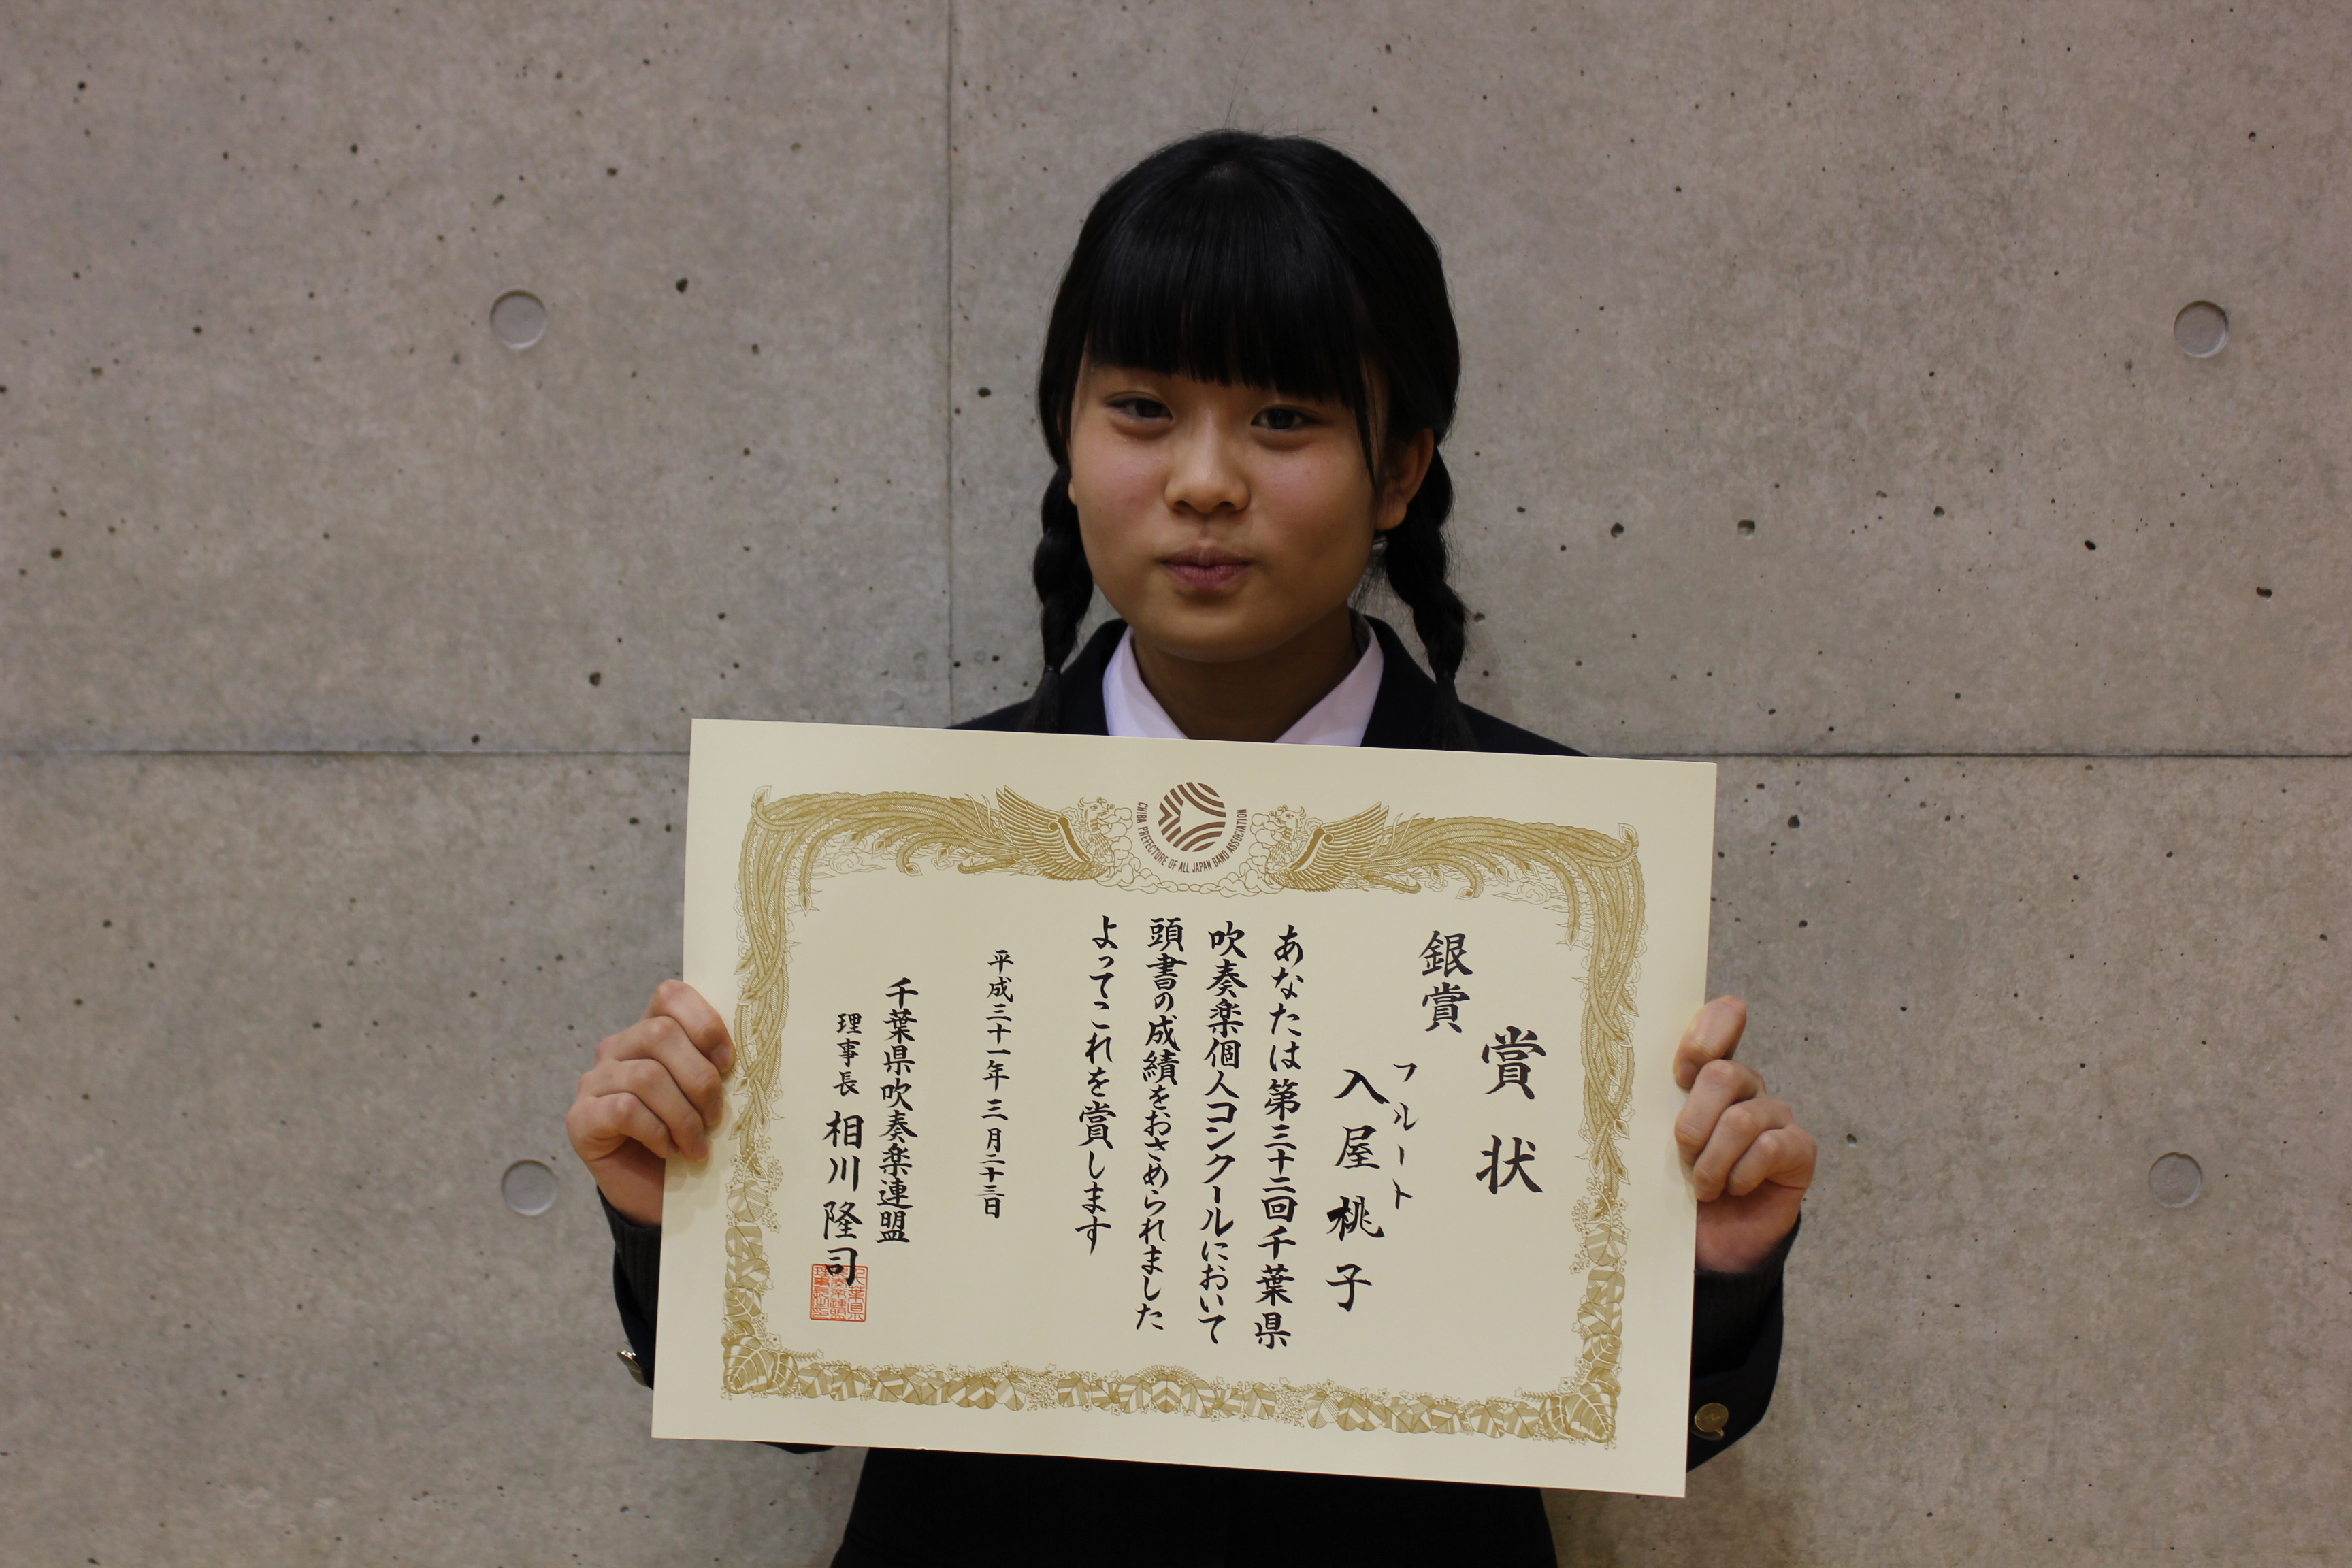 CHIBA PREFECTURE OF ALL JAPAN BAND ASSOCIATION
賞状
銀賞
フルート
入屋桃子
あなたは第三十二回千葉県
吹奏楽個人コンクールにおいて
頭書の成績をおさめられました
よってこれを賞します
平成三十一年三月二十三日
千葉県吹奏楽連盟
理事長 相川隆司